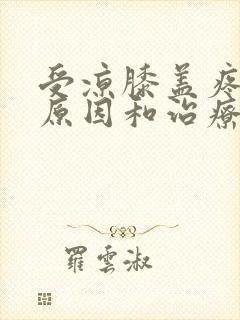 受凉膝盖疼
原因和治疗
羅雲淑